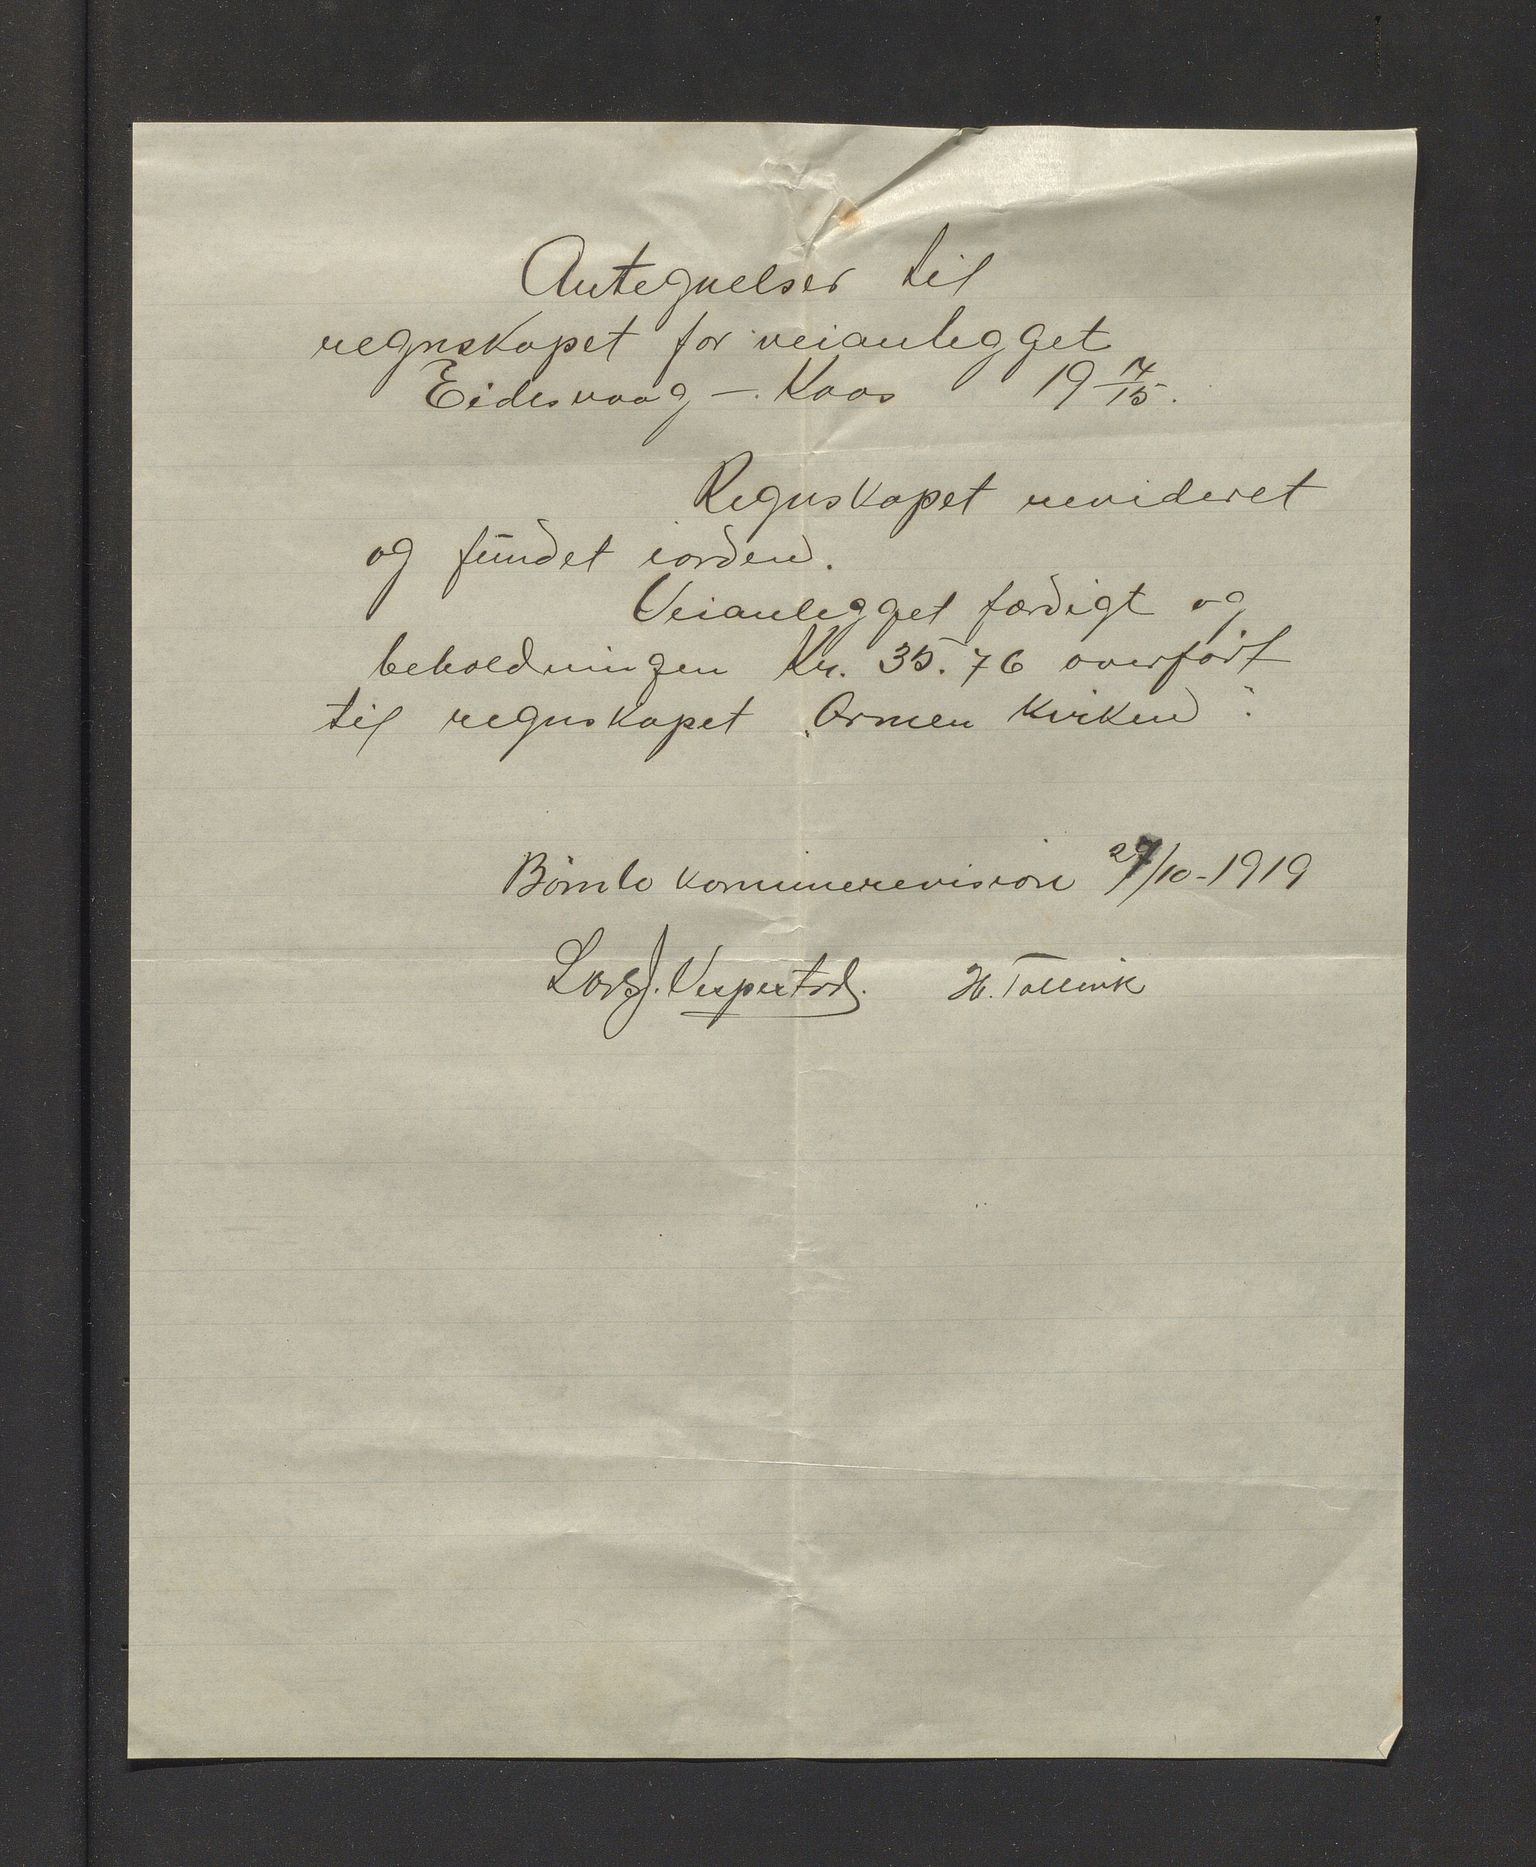 Antegnelser til
regnskapet for veianlegget
Eidesvaag - Kaas 19 14/15.
Regnskapet revideret
og fundet iorden.
Veianlegget færdigt og
beholdningen Kr. 35.76 overført
til regnskapet "Ormen Kirken".
Bömlo kommunerevision 27/10-1919
Lars J. H. Tollevik